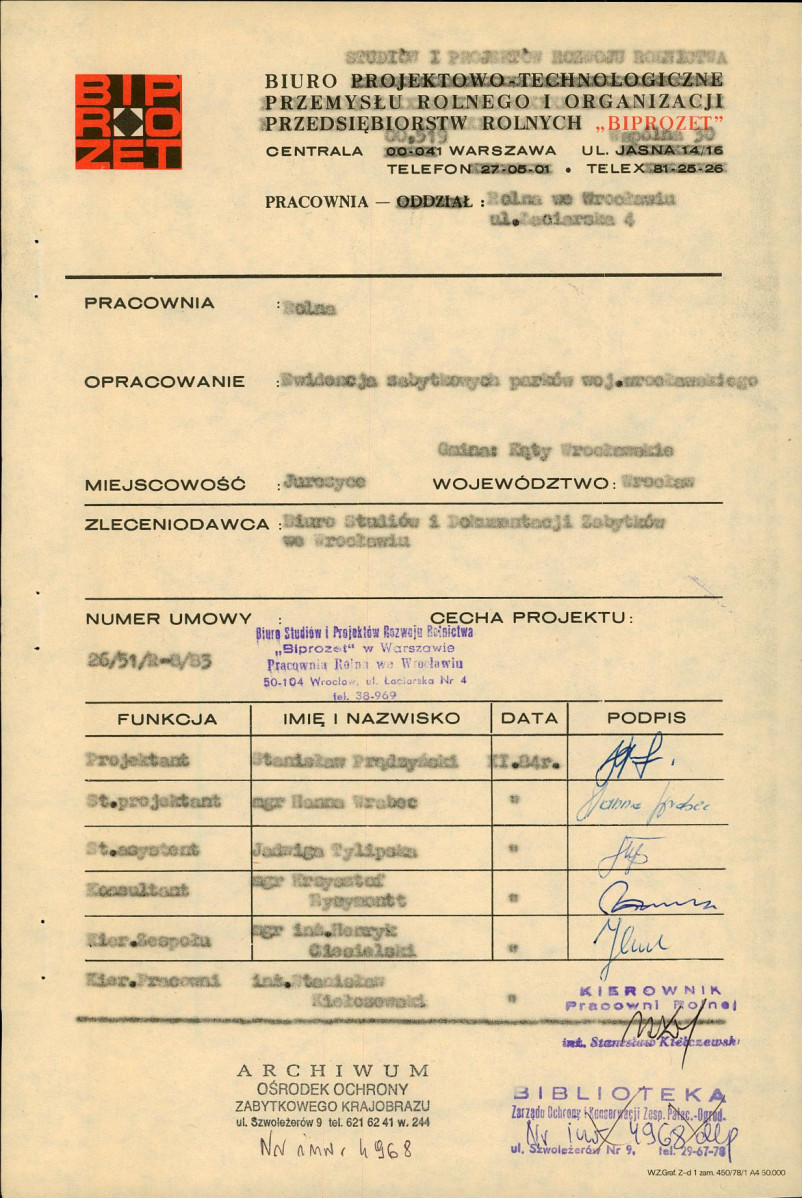 BIP
RO
ZET
STUDIÓW I PROJEKTÓW ROZWOJU ROLNICTWA
BIURO PROJEKTOWO-TECHNOLOGICZNE
PRZEMYSŁU ROLNEGO I ORGANIZACJI
PRZEDSIĘBIORSTW ROLNYCH „BIPROZET”
00,519 Wspólna 30
CENTRALA 00-041 WARSZAWA UL. JASNA 14/16
TELEFON 27-05-01 • TELEX 81-25-26
PRACOWNIA — ODDZIAŁ : Rolna we Wrocławiu
ul.Łaciarska 4
PRACOWNIA : Rolna
OPRACOWANIE : Ewidencja zabytkowych parków woj.wrocławskiego
Gmina: Kąty Wrocławskie
MIEJSCOWOŚĆ : Jurczyce WOJEWÓDZTWO: Wrocław
ZLECENIODAWCA : Biuro Studiów i Dokumentacji Zabytków
we Wrocławiu
NUMER UMOWY : CECHA PROJEKTU:
26/51/R-8/83
Biuro Studiów i Projektów Rozwoju Rolnictwa
„Biprozet” w Warszawie
Pracownia Rolna we Wrocławiu
50-104 Wrocław, ul. Łaciarska Nr 4
tel. 38-969
FUNKCJA IMIĘ I NAZWISKO DATA PODPIS
Projektant Stanisław Prądzyński XI.84r.
St.projektant mgr Hanna Wrabec " Hanna Wrabec
St.asystent Jadwiga Tylipska "
Konsultant mgr Krzysztof
Eysymontt "
Kier.Zespołu mgr inż.Henryk
Ciesielski "
Kier.Pracowni inż.Stanisław
Kiełczewski "
KIEROWNIK
Pracowni Rolnej
inż. Stanisław Kiełczewski
ARCHIWUM
OŚRODEK OCHRONY
ZABYTKOWEGO KRAJOBRAZU
ul. Szwoleżerów 9 tel. 621 62 41 w. 244
Nr inw. 4968
BIBLIOTEKA
Zarządu Ochrony i Konserwacji Zesp. Pałac.-Ogrod.
Nr inw 4968
ul. Szwoleżerów Nr 9, tel. 29-67-78
W.Z.Graf. Z-d 1 zam. 450/78/1 A4 50.000